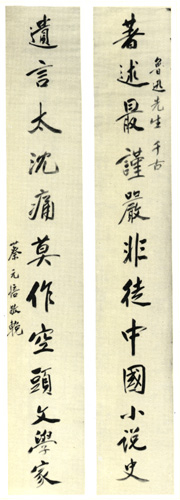 魯迅先生千古
著述最謹嚴非徒中國小说史
遺言太沈痛莫作空頭文學家
蔡元培敬輓